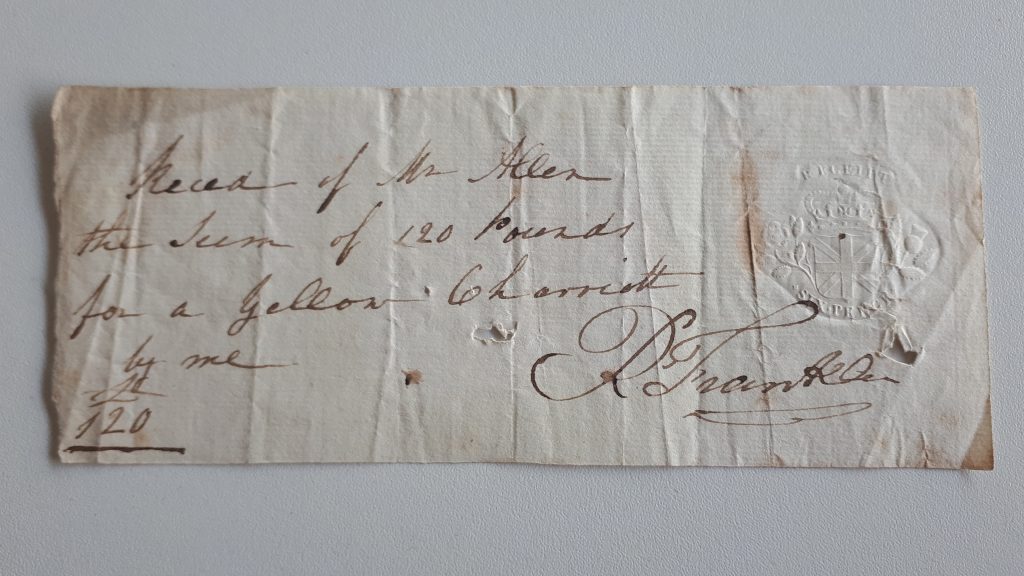 Reced of Mr Allen
the Sum of 120 Pounds
for a Yellow Charriott
by me
R Franklin
120
RECEIPT